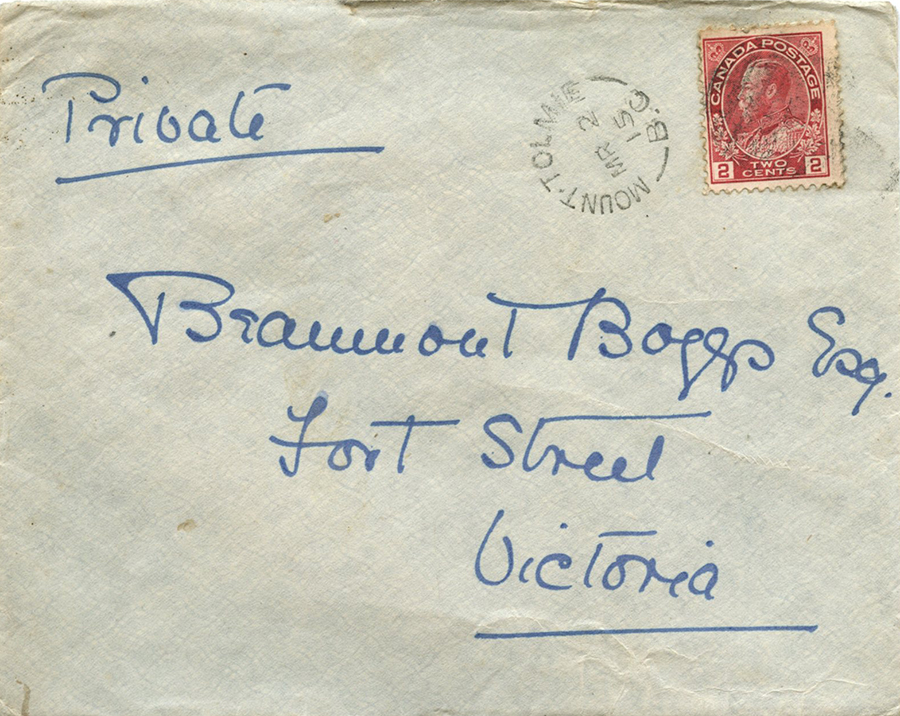 Private
MOUNT·TOLMIE
MR 2
15
B.C
CANADA POSTAGE
2 TWO CENTS 2
Beaumont Boggs Esq.
Fort Street
Victoria